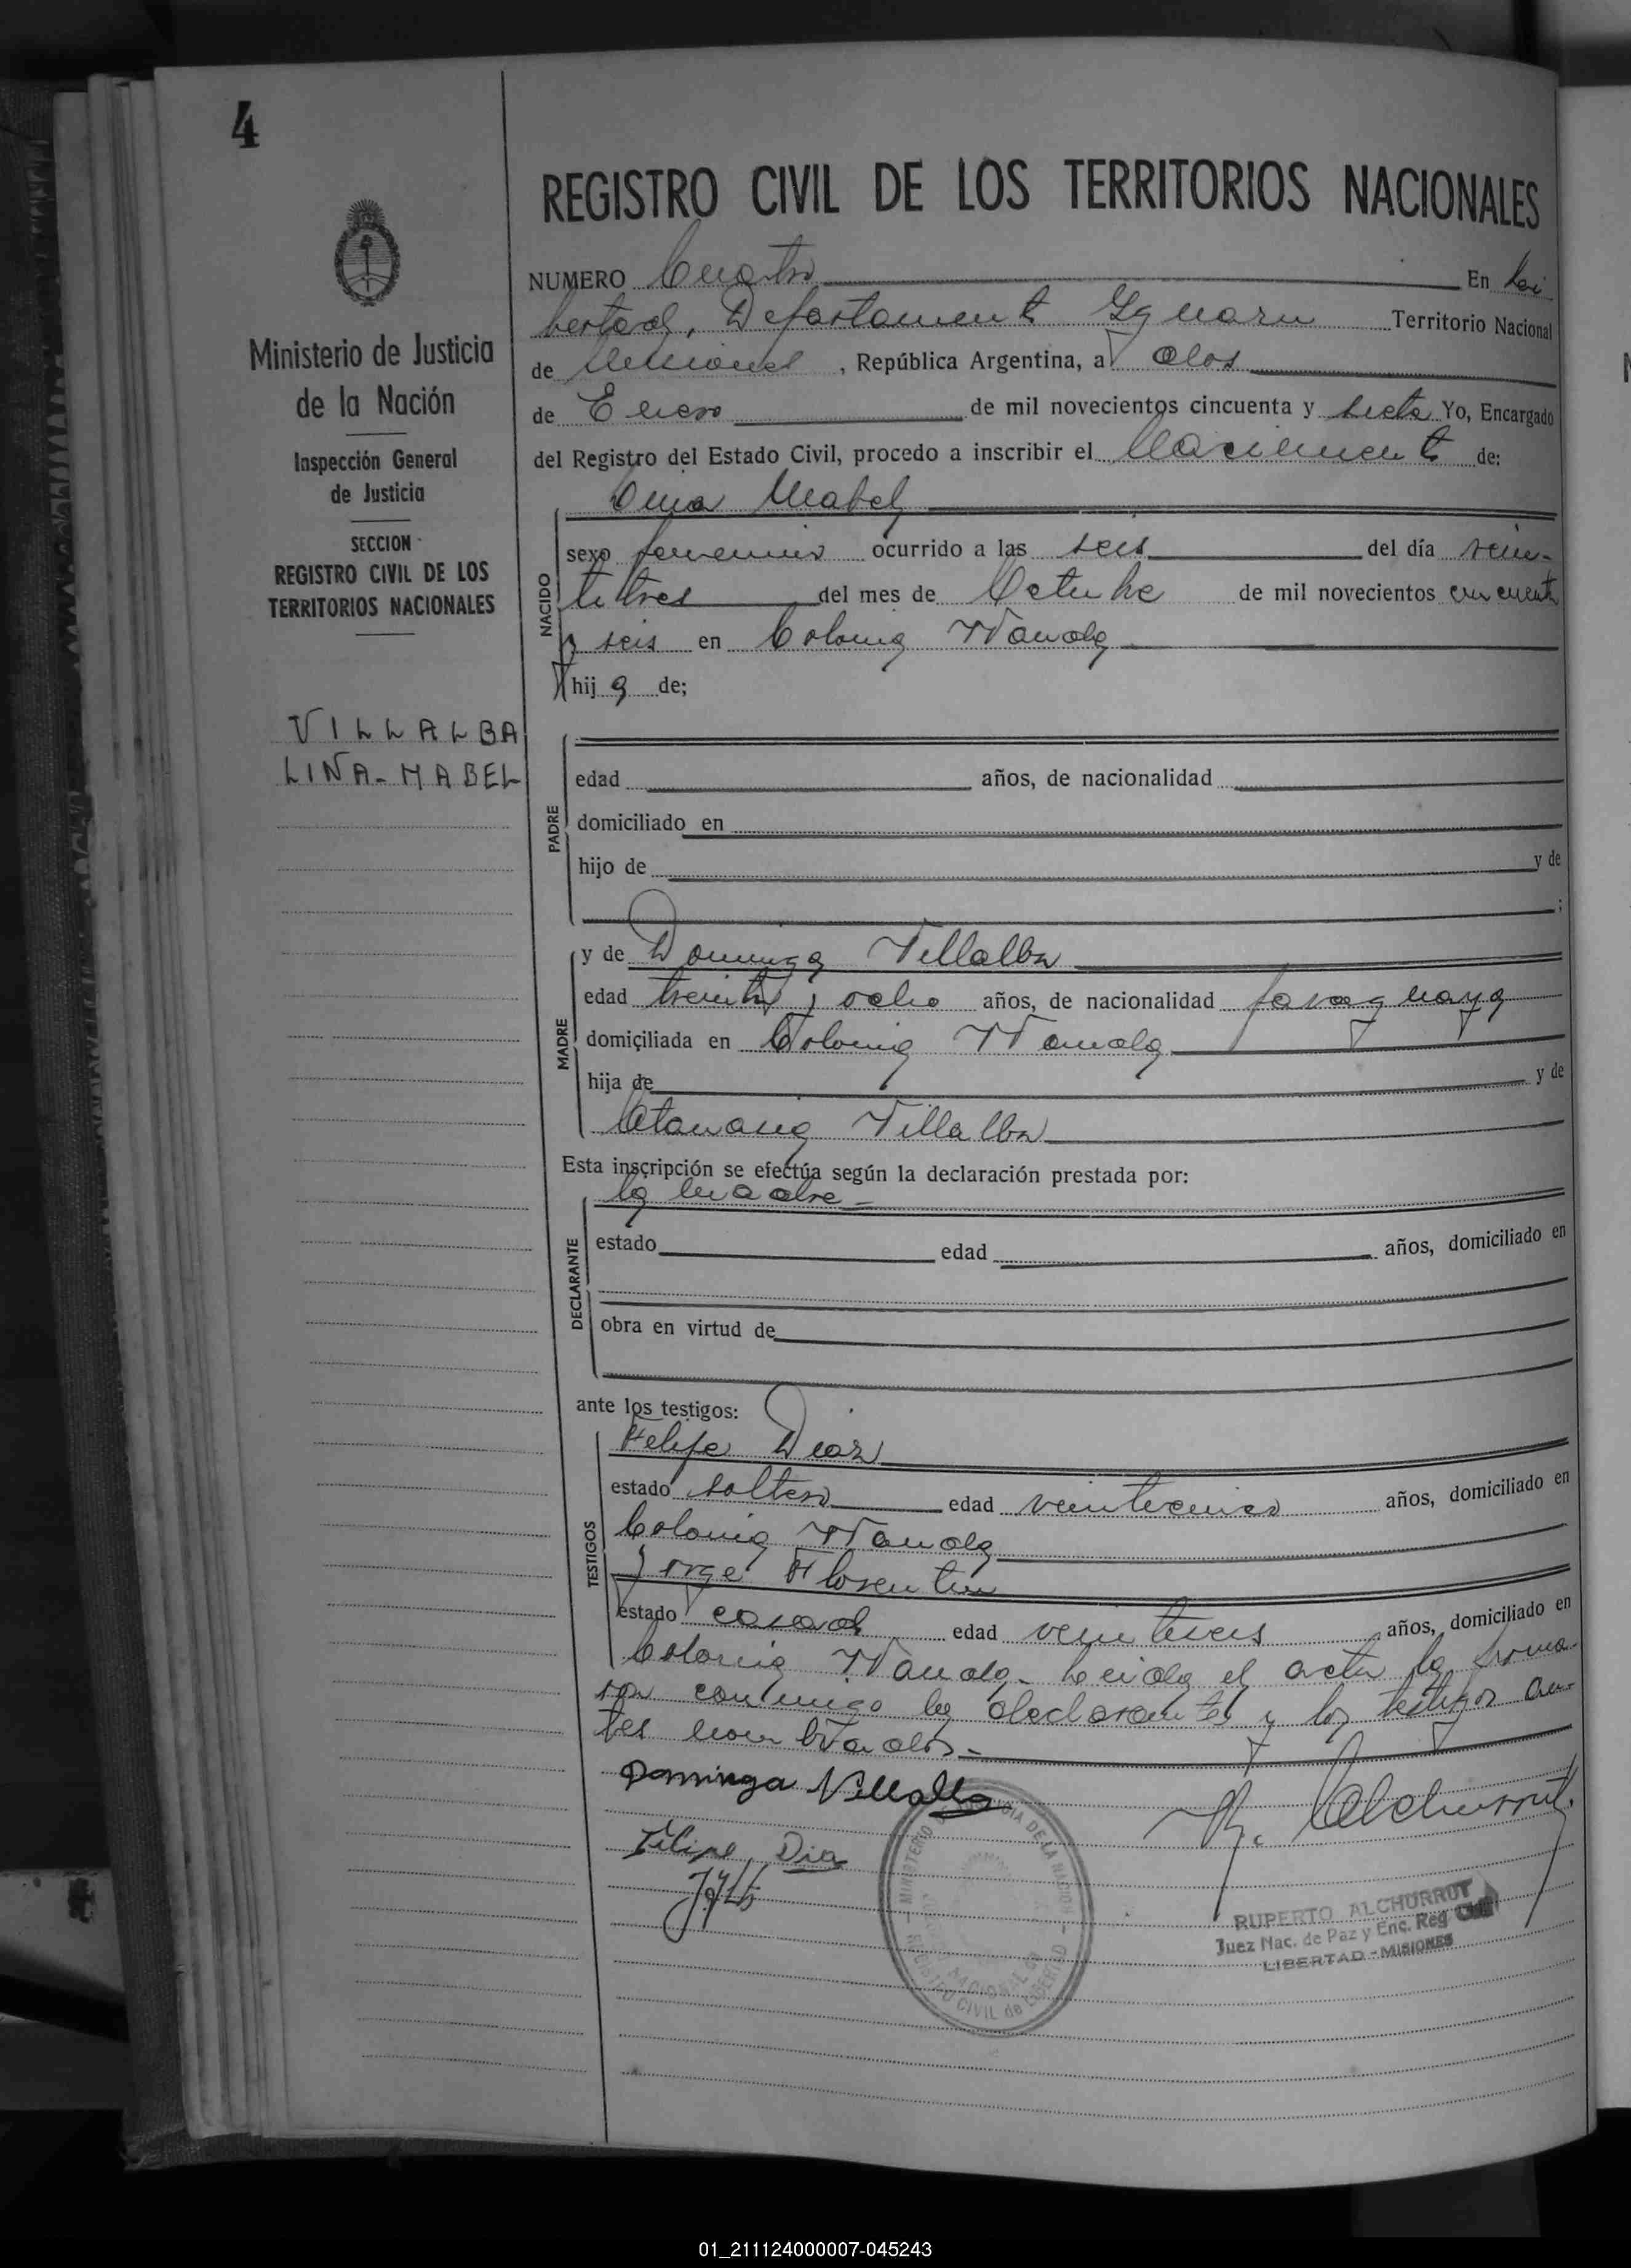 4
REGISTRO CIVIL DE LOS TERRITORIOS NACIONALES
NUMERO Cuatro En Li
bertad, Departamento Iguazu Territorio Nacional
de Misiones, República Argentina, a dos
de Enero de mil novecientos cincuenta y siete Yo, Encargado
del Registro del Estado Civil, procedo a inscribir el Nacimiento de:
Ministerio de Justicia
de la Nación
Inspección General
de Justicia
SECCION
REGISTRO CIVIL DE LOS
TERRITORIOS NACIONALES
VILLALBA
LIÑA-MABEL
NACIDO
Mabel
sexo femenino ocurrido a las seis del día vein-
titres del mes de Octubre de mil novecientos cincuenta
y seis en Colonia Wanda
hija de;
PADRE
edad años, de nacionalidad
domiciliado en
hijo de y de
;
MADRE
y de Dominga Villalba
edad treinta y ocho años, de nacionalidad paraguaya
domiciliada en Colonia Wanda
hija de y de
Villalba
Esta inscripción se efectúa según la declaración prestada por:
DECLARANTE
la madre-
estado edad años, domiciliado en
obra en virtud de
ante los testigos:
TESTIGOS
Felipe Diaz
estado soltero edad veinticinco años, domiciliado en
Colonia Wanda
Jorge Florentin
estado casado edad veintiseis años, domiciliado en
Colonia Wanda- Leida el acta la firma-
ron conmigo la declarante y los testigos an-
tes nombrados.-
Dominga Villalba
Felipe Dia
R. Alchurrut
MINISTERIO DE JUSTICIA DE LA NACION
REGISTRO CIVIL de LIBERTAD
RUPERTO ALCHURRUT
Juez Nac. de Paz y Enc. Reg. Civil
LIBERTAD - MISIONES
01_211124000007-045243